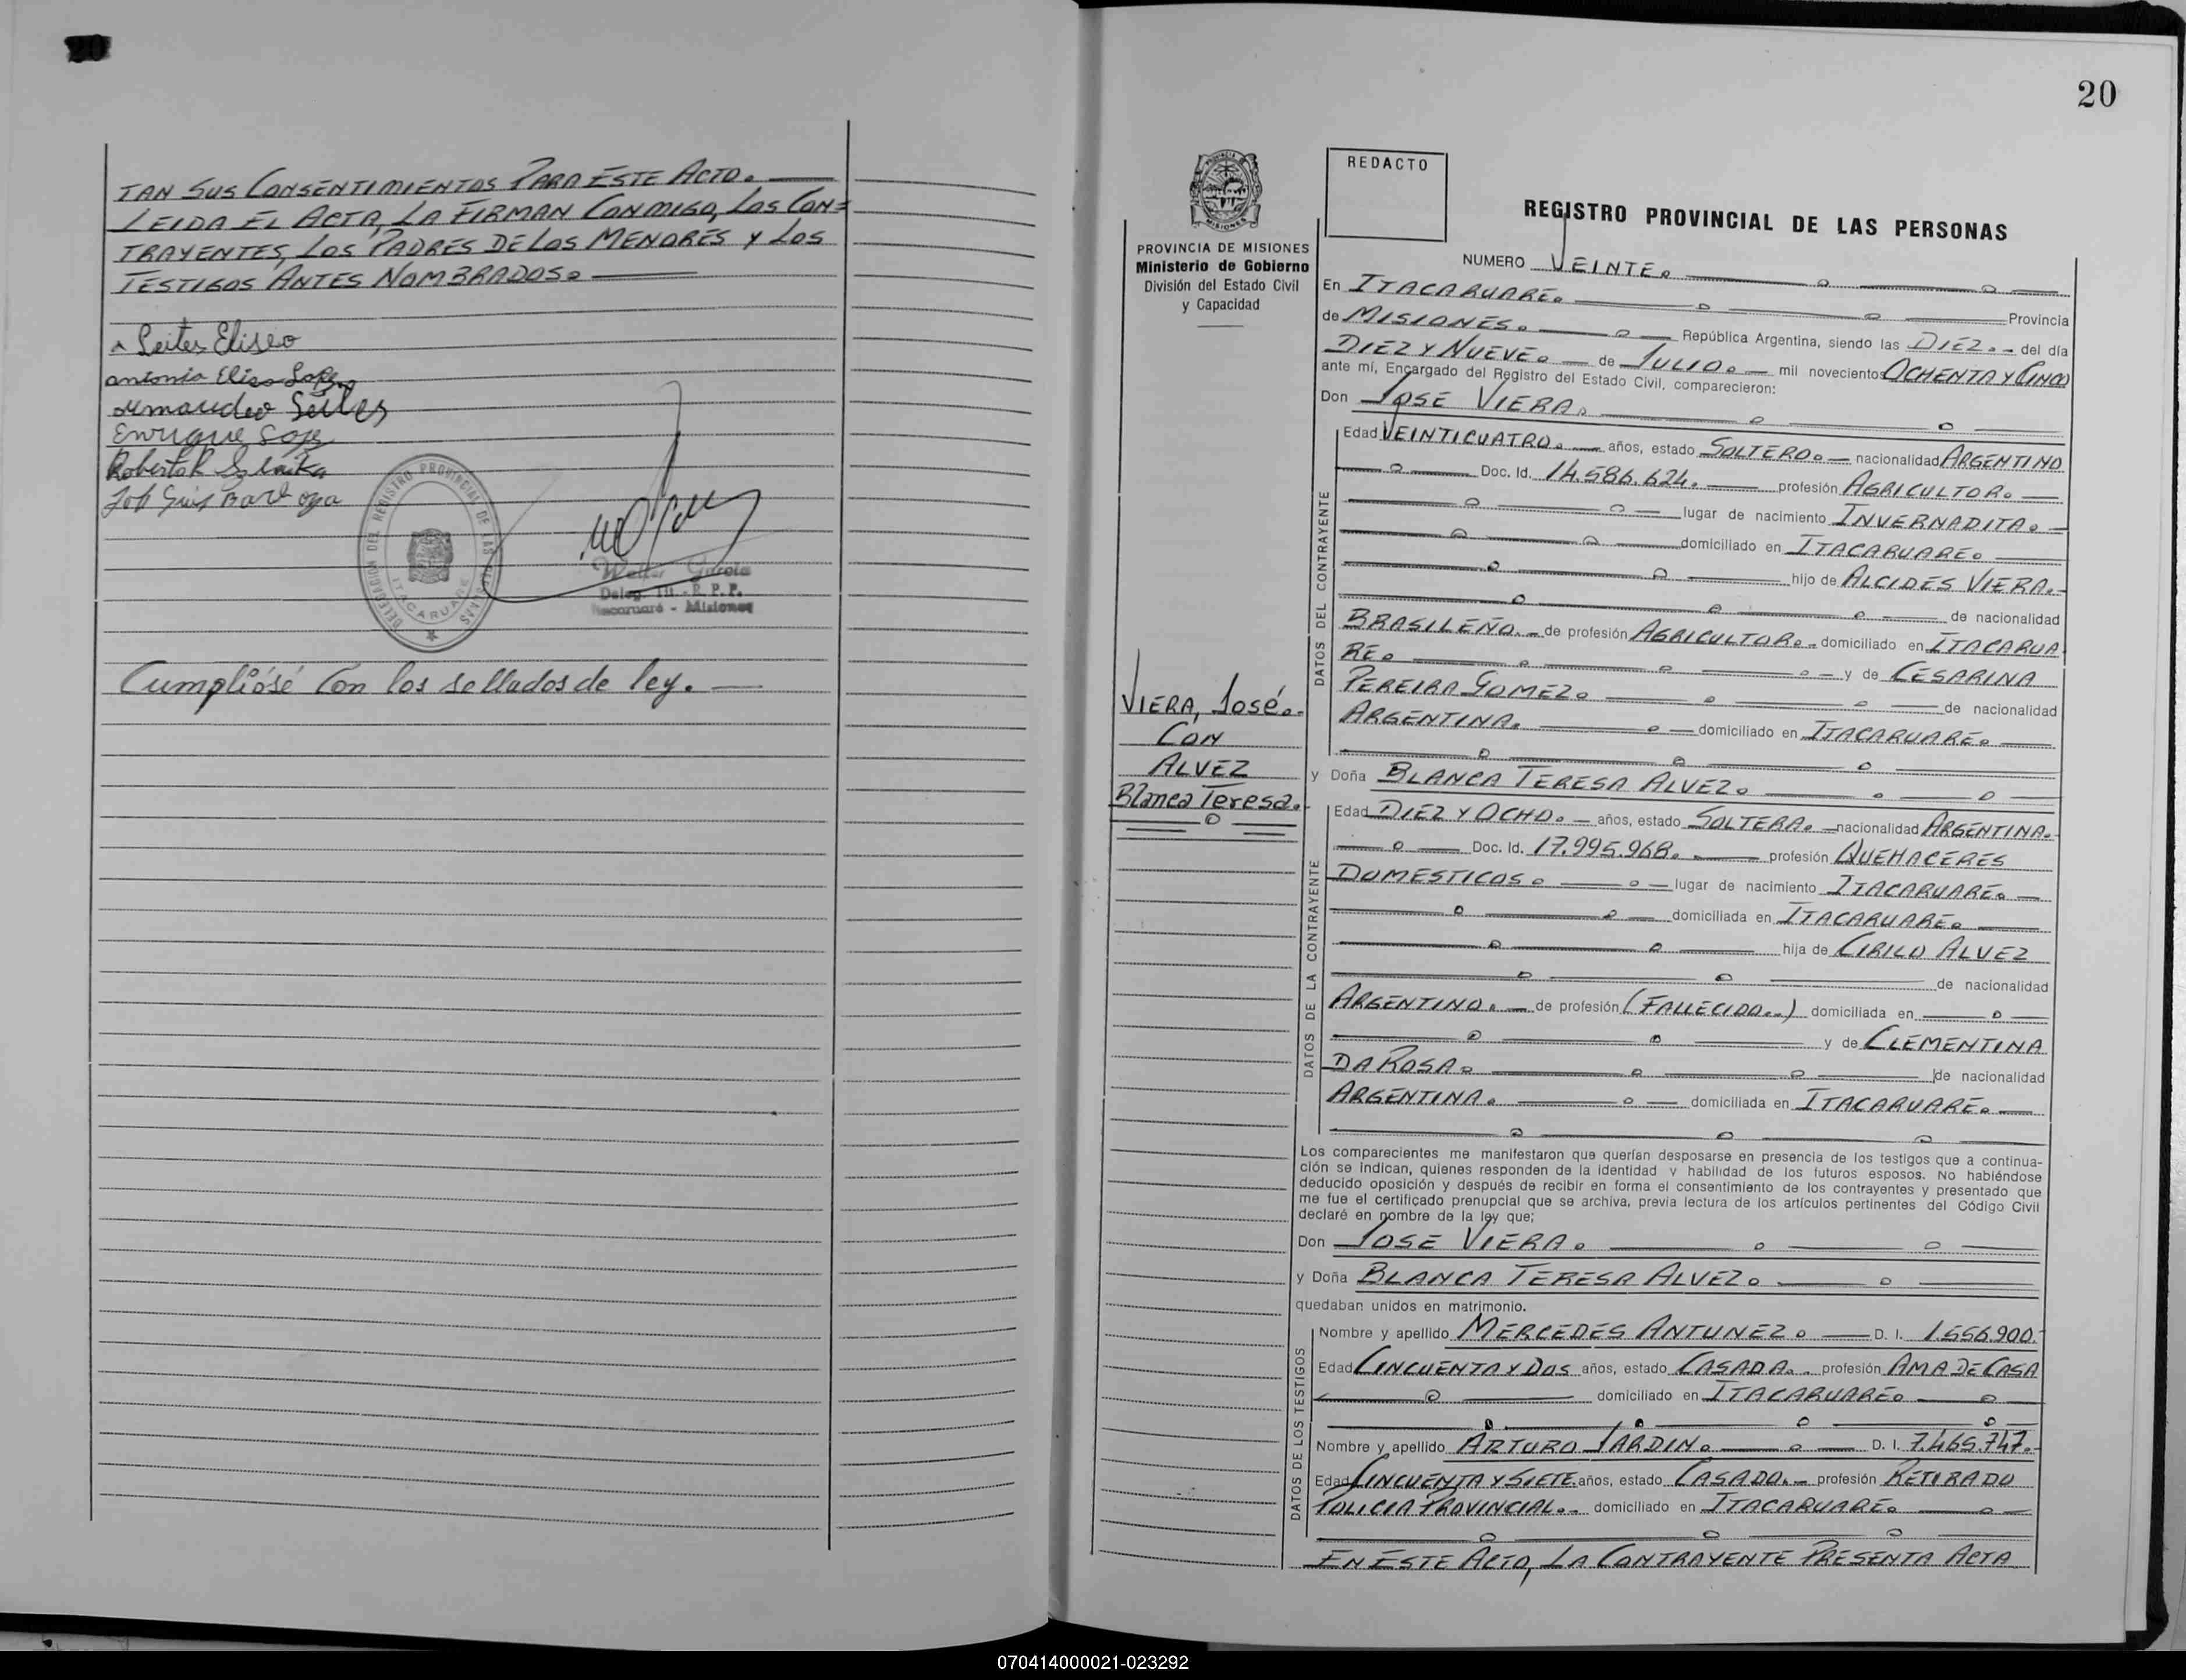 TAN SUS CONSENTIMIENTOS PARA ESTE ACTO.
LEIDA EL ACTA, LA FIRMAN CONMIGO, LOS CON=
TRAYENTES, LOS PADRES DE LOS MENORES Y LOS
TESTIGOS ANTES NOMBRADOS.
Leites Eliseo
antonia Elisa
Enrique
Roberto R
DELEGACION DEL REGISTRO PROVINCIAL DE LAS PERSONAS
ITACARUARE
Walter Garcia
Deleg. Tit. - R. P. P.
Itacaruaré - Misiones
Cumplióse con los sellados de ley.
20
PROVINCIA DE MISIONES
Ministerio de Gobierno
División del Estado Civil
y Capacidad
VIERA, José.
CON
ALVEZ
Blanca Teresa.
REDACTO
REGISTRO PROVINCIAL DE LAS PERSONAS
NUMERO VEINTE.
En ITACARUARE. Provincia
de MISIONES. República Argentina, siendo las DIEZ. del día
DIEZ Y NUEVE. de JULIO. mil novecientos OCHENTA Y CINCO
ante mí, Encargado del Registro del Estado Civil, comparecieron:
Don JOSE VIERA.
DATOS DEL CONTRAYENTE
Edad VEINTICUATRO. años, estado SOLTERO. nacionalidad ARGENTINO
Doc. Id. 14.586.624. profesión AGRICULTOR.
lugar de nacimiento INVERNADITA.
domiciliado en ITACARUARE.
hijo de ALCIDES VIERA.
de nacionalidad
BRASILEÑO. de profesión AGRICULTOR. domiciliado en ITACARUA
RE. y de CESARINA
PEREIRA GOMEZ. de nacionalidad
ARGENTINA. domiciliado en ITACARUARE.
y Doña BLANCA TERESA ALVEZ.
DATOS DE LA CONTRAYENTE
Edad DIEZ Y OCHO. años, estado SOLTERA. nacionalidad ARGENTINA.
Doc. Id. 17.995.968. profesión QUEHACERES
DOMESTICOS. lugar de nacimiento ITACARUARE.
domiciliada en ITACARUARE.
hija de CIRILO ALVEZ
de nacionalidad
ARGENTINO. de profesión (FALLECIDO.) domiciliada en
y de CLEMENTINA
DA ROSA. de nacionalidad
ARGENTINA. domiciliada en ITACARUARE.
Los comparecientes me manifestaron que querían desposarse en presencia de los testigos que a continua-
ción se indican, quienes responden de la identidad y habilidad de los futuros esposos. No habiéndose
deducido oposición y después de recibir en forma el consentimiento de los contrayentes y presentado que
me fue el certificado prenupcial que se archiva, previa lectura de los artículos pertinentes del Código Civil
declaré en nombre de la ley que;
Don JOSE VIERA.
y Doña BLANCA TERESA ALVEZ.
quedaban unidos en matrimonio.
DATOS DE LOS TESTIGOS
Nombre y apellido MERCEDES ANTUNEZ. D. I. 1.556.900.
Edad CINCUENTA Y DOS años, estado CASADA. profesión AMA DE CASA
domiciliado en ITACARUARE.
Nombre y apellido ARTURO JARDIN. D. I. 7.465.747.
Edad CINCUENTA Y SIETE años, estado CASADO. profesión RETIRADO
POLICIA PROVINCIAL. domiciliado en ITACARUARE.
EN ESTE ACTO, LA CONTRAYENTE PRESENTA ACTA
070414000021-023292